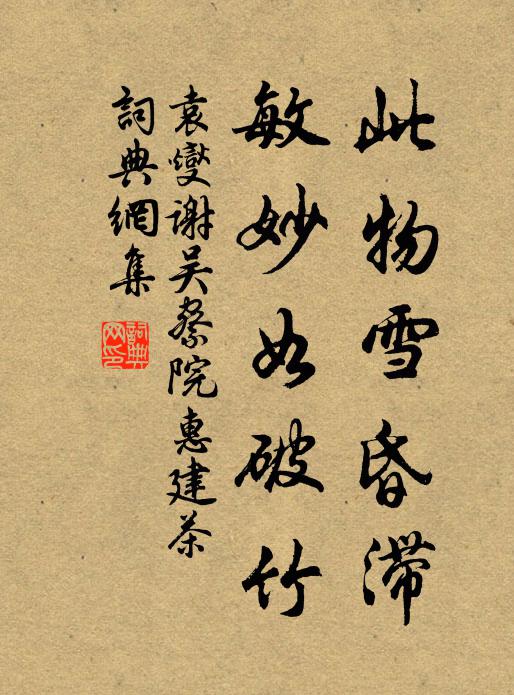 此物雪昏滯
敏妙如破竹
袁燮謝吴察院惠建茶
詞典網集
詞典網印